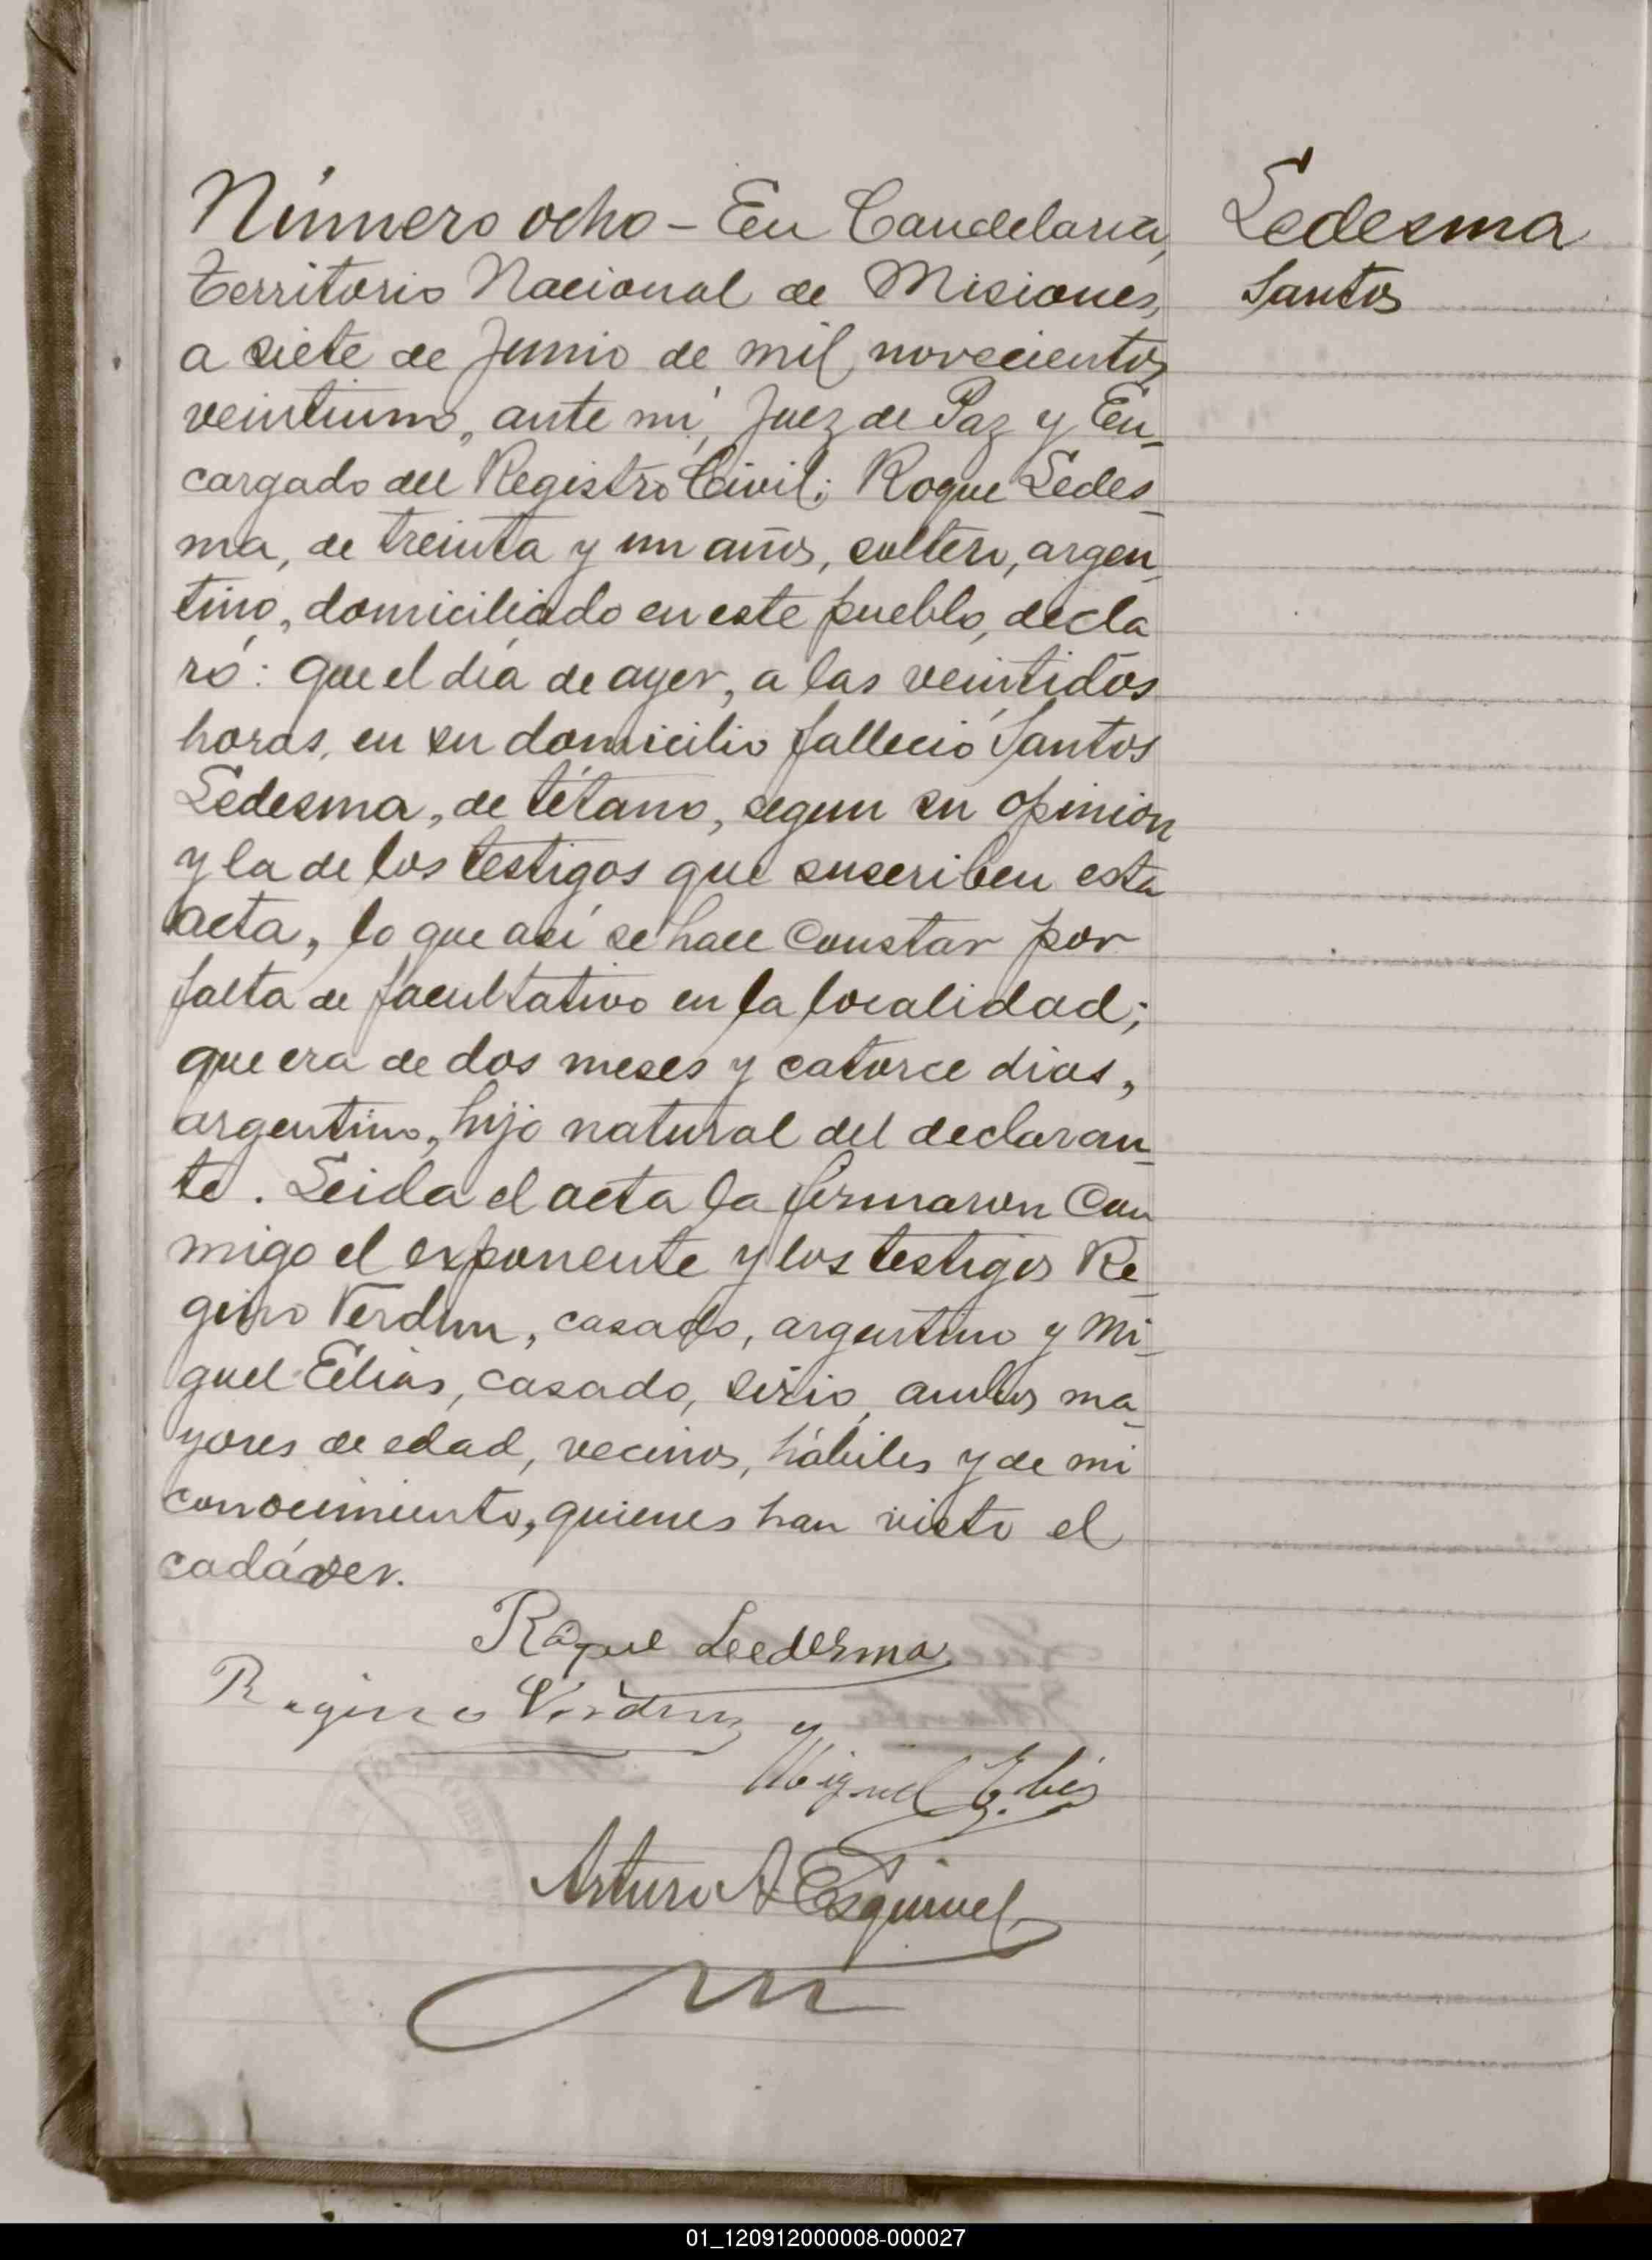 Número ocho - En Candelaria,
Territorio Nacional de Misiones,
a siete de Junio de mil novecientos
veintiuno, ante mí, Juez de Paz y En-
cargado del Registro Civil; Roque Ledes-
ma, de treinta y un años, soltero, argen-
tino, domiciliado en este pueblo, decla
ró: que el día de ayer, a las veintidós
horas, en su domicilio falleció Santos
Ledesma, de tétano, segun su opinion
y la de los testigos que suscriben esta
acta, lo que así se hace constar por
falta de facultativo en la localidad;
que era de dos meses y catorce dias,
argentino, hijo natural del declaran-
te. Leida el acta la firmaron con
migo el exponente y los testigos Re-
gino Verdun, casado, argentino y Mi-
guel Elias, casado, sirio, ambos ma-
yores de edad, vecinos, hábiles y de mi
conocimiento, quienes han visto el
cadáver.
Roque Leedesma
Regino Verdun
Miguel Elias
Arturo A Esquivel
Ledesma
Santos
01_120912000008-000027